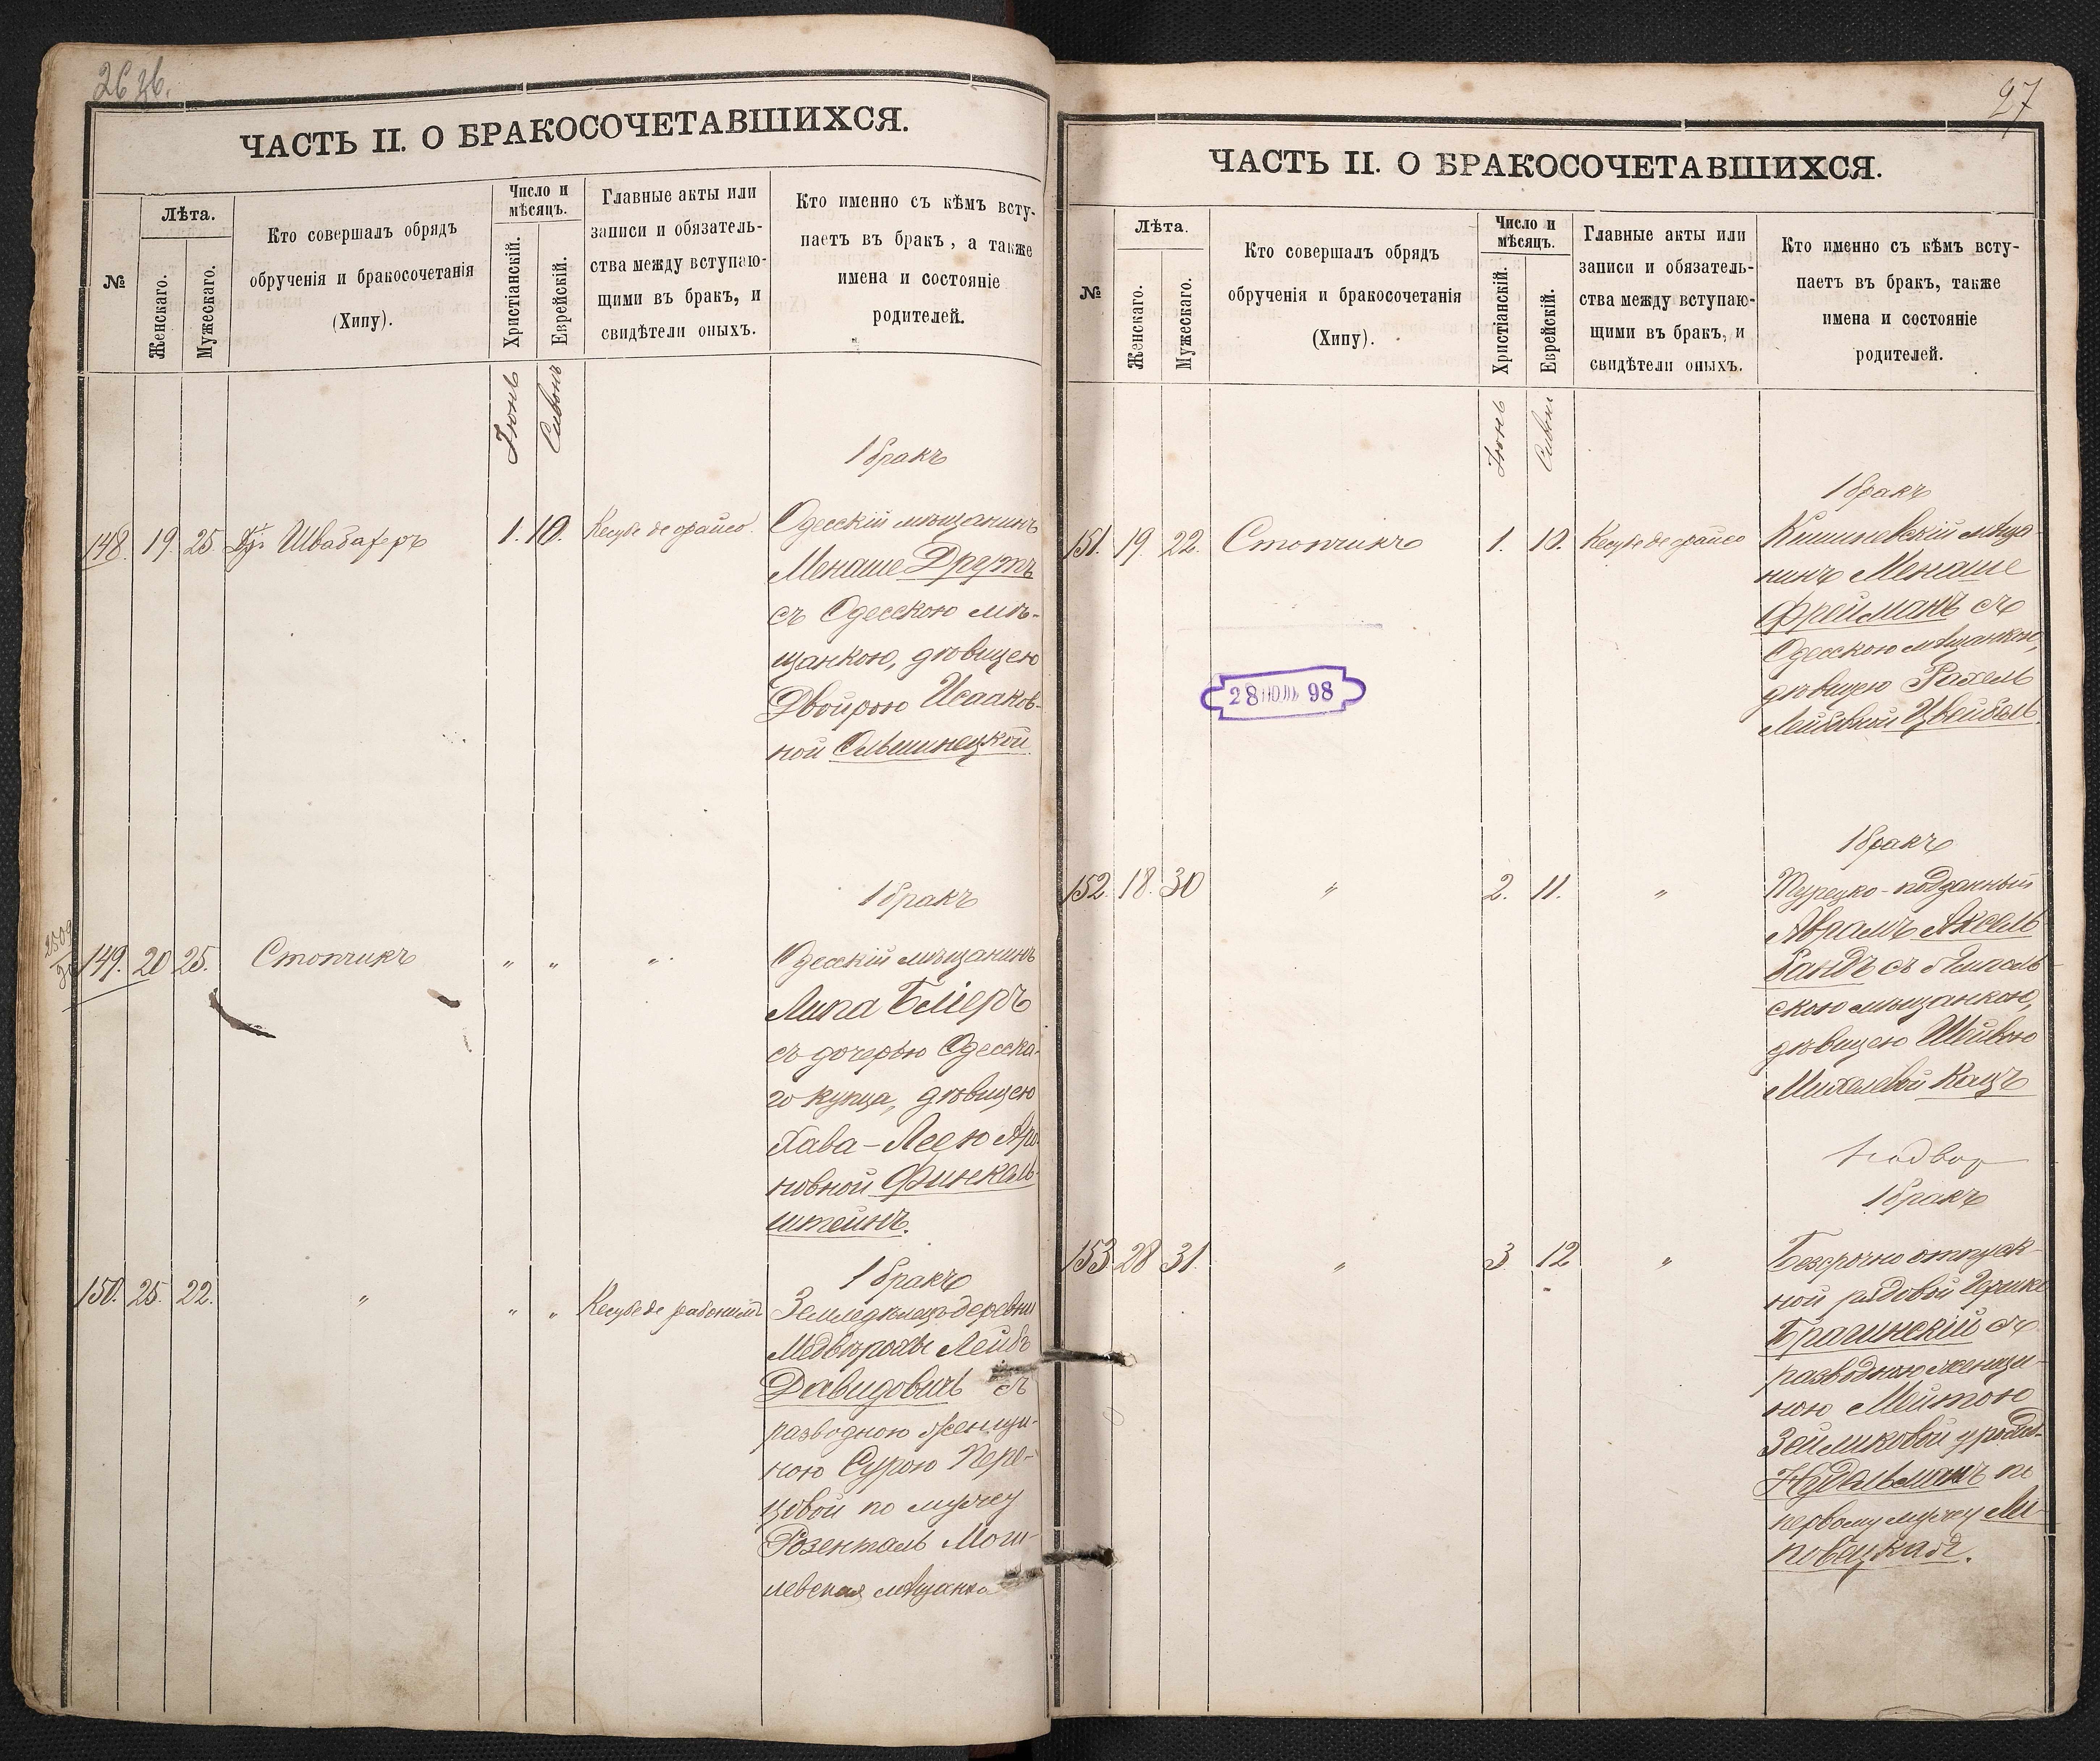 26 об.
ЧАСТЬ II. О БРАКОСОЧЕТАВШИХСЯ.
№
Лѣта.
Женскаго.
Мужескаго.
Кто совершалъ обрядъ
обрученія и бракосочетанія
(Хипу).
Число и
мѣсяцъ.
Христіанскій.
Еврейскій.
Главные акты или
записи и обязатель-
ства между вступаю-
щими въ бракъ, и
свидѣтели оныхъ.
Кто именно съ кѣмъ всту-
паетъ въ бракъ, а также
имена и состояніе
родителей.
Іюнь
Сивонъ
1 бракъ
148. 19. 25. Др. Швабахеръ 1. 10. Кесубе де орайсо.
Одесскій мѣщанинъ
Менаше Друтъ
съ Одесскою мѣ-
щанкою, дѣвицею
Двойрою Исааков-
ной Ольшинецкой
1 бракъ
149. 20 25. Стопчикъ " " "
Одесскій мѣщанинъ
Липа Бліеръ
съ дочерью Одесска-
го купца, дѣвицею
Хава-Леею Аро-
новной Финкель-
штейнъ.
1 бракъ
150. 25. 22. " " " Кесубе де рабонимъ
Земледѣлецъ деревни
Лейбъ
Давидовичъ съ
разводною женщи-
ною Сурою Пере-
цовой по мужу
Розенталь Моги-
левская мѣщанка
27
ЧАСТЬ II. О БРАКОСОЧЕТАВШИХСЯ.
№
Лѣта.
Женскаго.
Мужескаго.
Кто совершалъ обрядъ
обрученія и бракосочетанія
(Хипу).
Число и
мѣсяцъ.
Христіанскій.
Еврейскій.
Главные акты или
записи и обязатель-
ства между вступаю-
щими въ бракъ, и
свидѣтели оныхъ.
Кто именно съ кѣмъ всту-
паетъ въ бракъ, также
имена и состояніе
родителей.
Іюнь
Сивонъ
1 бракъ
151. 19. 22. Стопчикъ 1. 10. Кесубе де орайсо
Кишиневскій мѣща-
нинъ Менаше
Фрейманъ съ
Одесскою мѣщанкою,
дѣвицею Рахель
Лейбовной Цвейбель
28 ІЮЛ 98
1 бракъ
152. 18. 30 " 2. 11. "
Турецко-подданный
Абрамъ Аксель
Бандъ съ
скою мѣщанкою,
дѣвицею Шейвою
Михелевой Кацъ
1 бракъ
153. 28 31. " 3 12 "
Безсрочно отпуск-
ной рядовой Гершко
Брагинскій съ
разводною женщи-
ною Мейтою
Зейликовой урожд.
Нудельманъ по
первому мужу Ли-
повецкая.